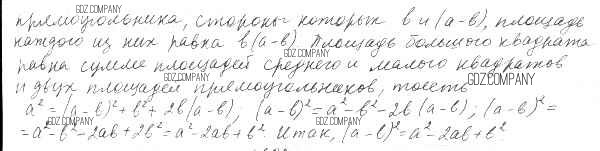 прямоугольника, стороны которых b и (a-b), площадь
каждого из них равна b(a-b). Площадь большого квадрата
равна сумме площадей среднего и малого квадратов
и двух площадей прямоугольников, то есть
a² = (a-b)² + b² + 2b(a-b); (a-b)² = a² - b² - 2b(a-b); (a-b)² =
= a² - b² - 2ab + 2b² = a² - 2ab + b². Итак, (a-b)² = a² - 2ab + b²
GDZ.COMPANY
GDZ.COMPANY
GDZ.COMPANY
GDZ.COMPANY
GDZ.COMPANY
GDZ.COMPANY
GDZ.COMPANY